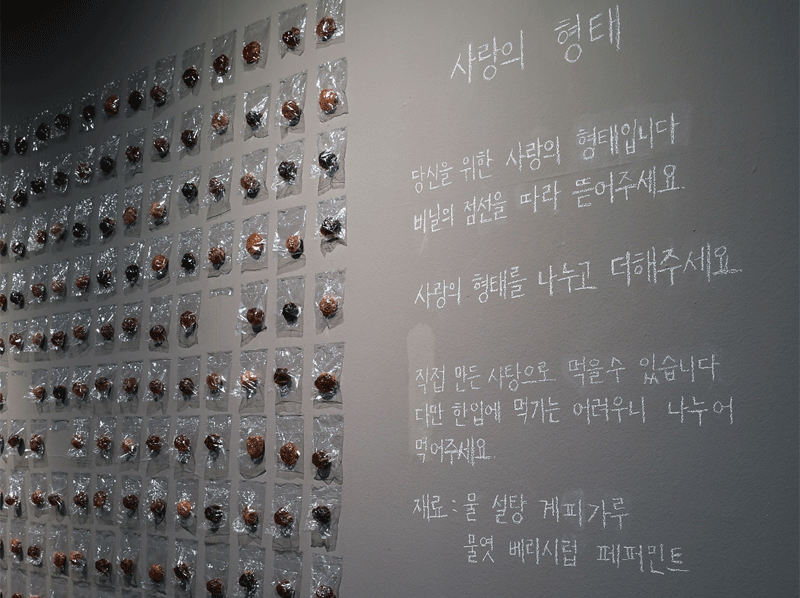 사랑의 형태
당신을 위한 사랑의 형태입니다
비닐의 점선을 따라 뜯어주세요.
사랑의 형태를 나누고 더해주세요.
직접 만든 사탕으로 먹을수 있습니다
다만 한입에 먹기는 어려우니 나누어
먹어주세요.
재료: 물 설탕 계피가루
물엿 베리시럽 페퍼민트